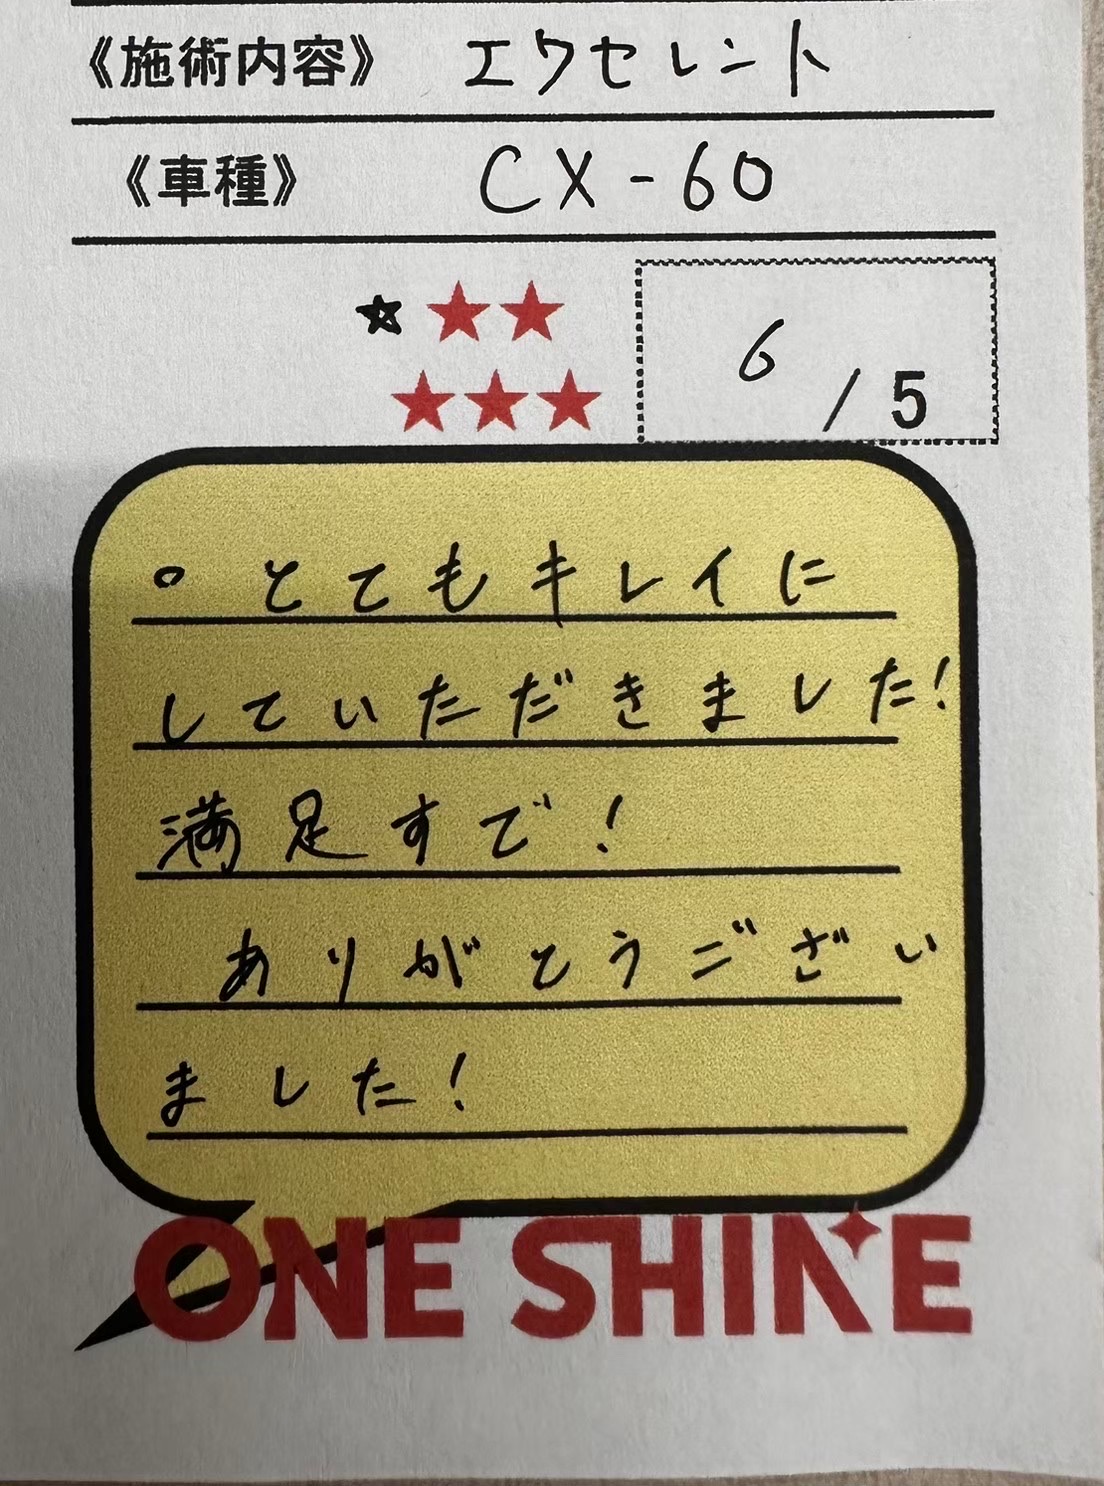 《施術内容》 エクセレント
《車種》 CX-60
☆★★
★★★
6/5
。とてもキレイに
していただきました!
満足すで!
ありがとうござい
ました!
ONE SHINE